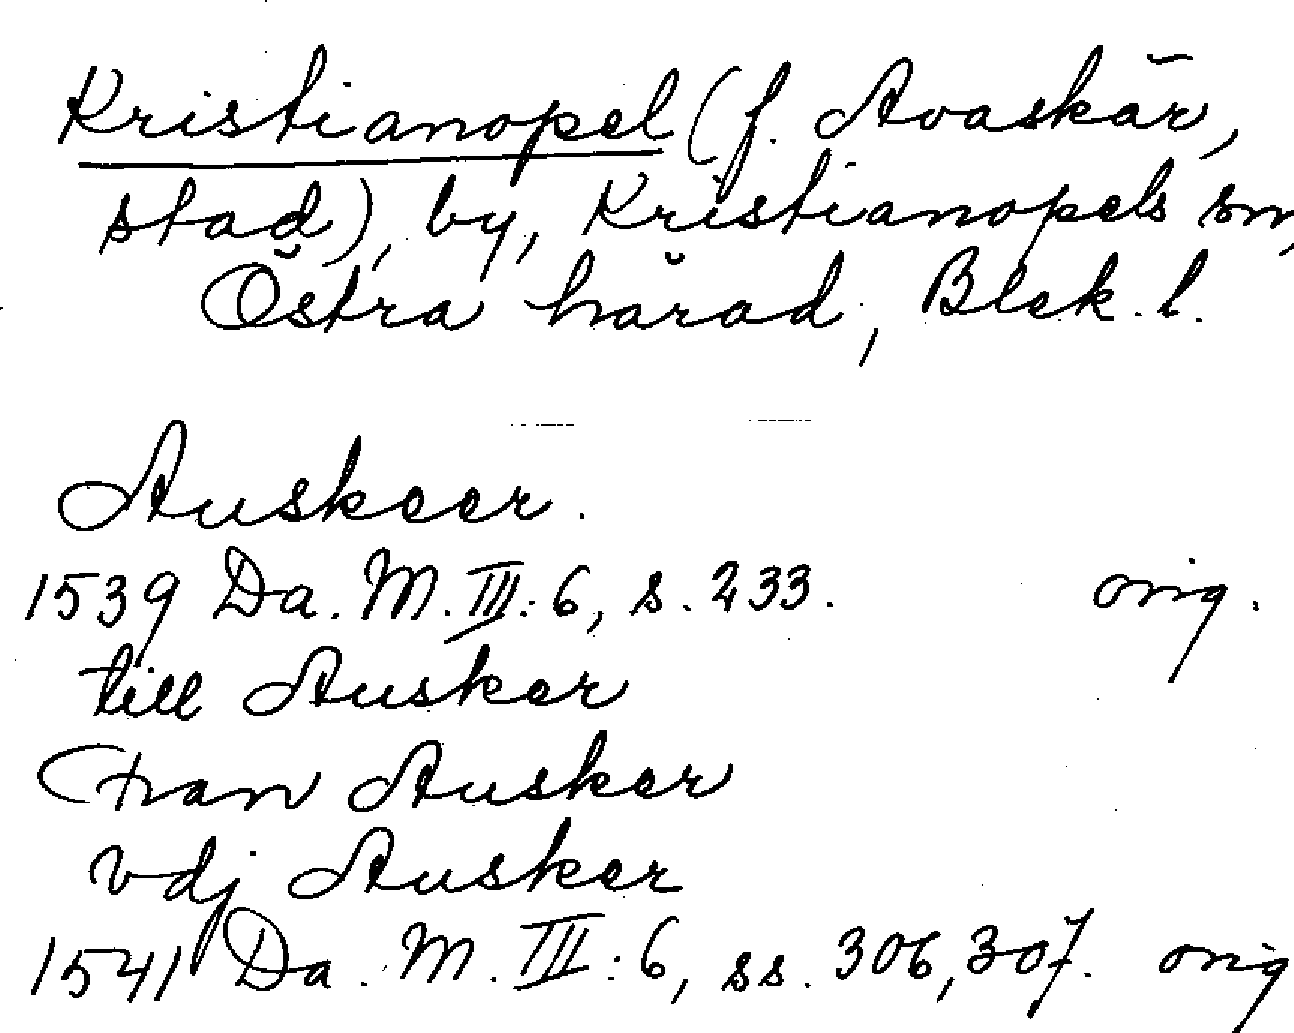 Kristianopel (f. Avaskär,
stad), by, Kristianopels sn,
Östra härad, Blek. l.
Auskeer.
1539 Da. M. III: 6, s. 233. orig.
till Ausker
Fran Ausker
vdj Ausker
1541 Da. M. III: 6, ss. 306, 307. orig